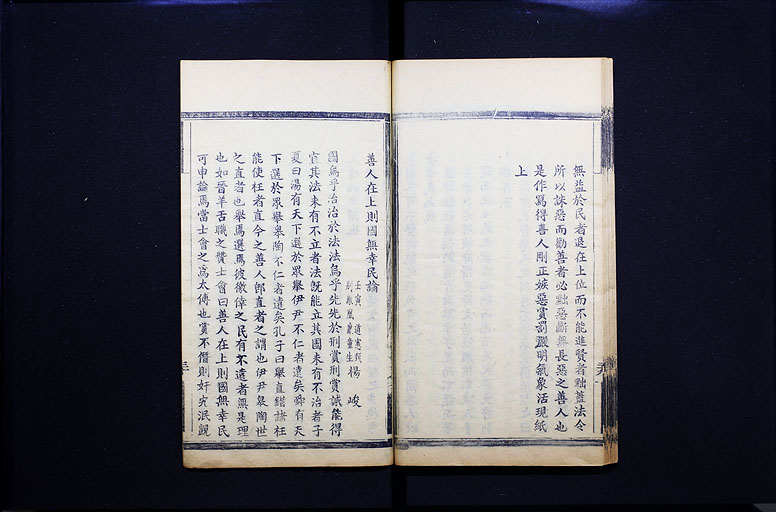 無益於民者退在上位而不能進賢者黜蓋法令
所以誅惡而勸善者必黜惡斷無長惡之善人也
是作寫得善人剛正嫉惡賞罰嚴明氣象活現紙
上
善人在上則國無幸民論
壬寅 道憲
鳳凰廳童生 楊 峻
國烏乎治治於法法烏乎先先於刑賞刑賞誠能得
宜其法未有不立者法既能立其國未有不治者子
夏曰湯有天下選於眾舉伊尹不仁者遠矣舜有天
下選於眾舉皋陶不仁者遠矣孔子曰舉直錯諸枉
能使枉者直今之善人即直者之謂也伊尹皋陶世
之直者也舉焉選焉彼徼倖之民有不遠者無是理
也如晉羊舌職之贊士會曰善人在上則國無幸民
可申論焉當士會之為太傅也賞不僭則奸宄泯覬